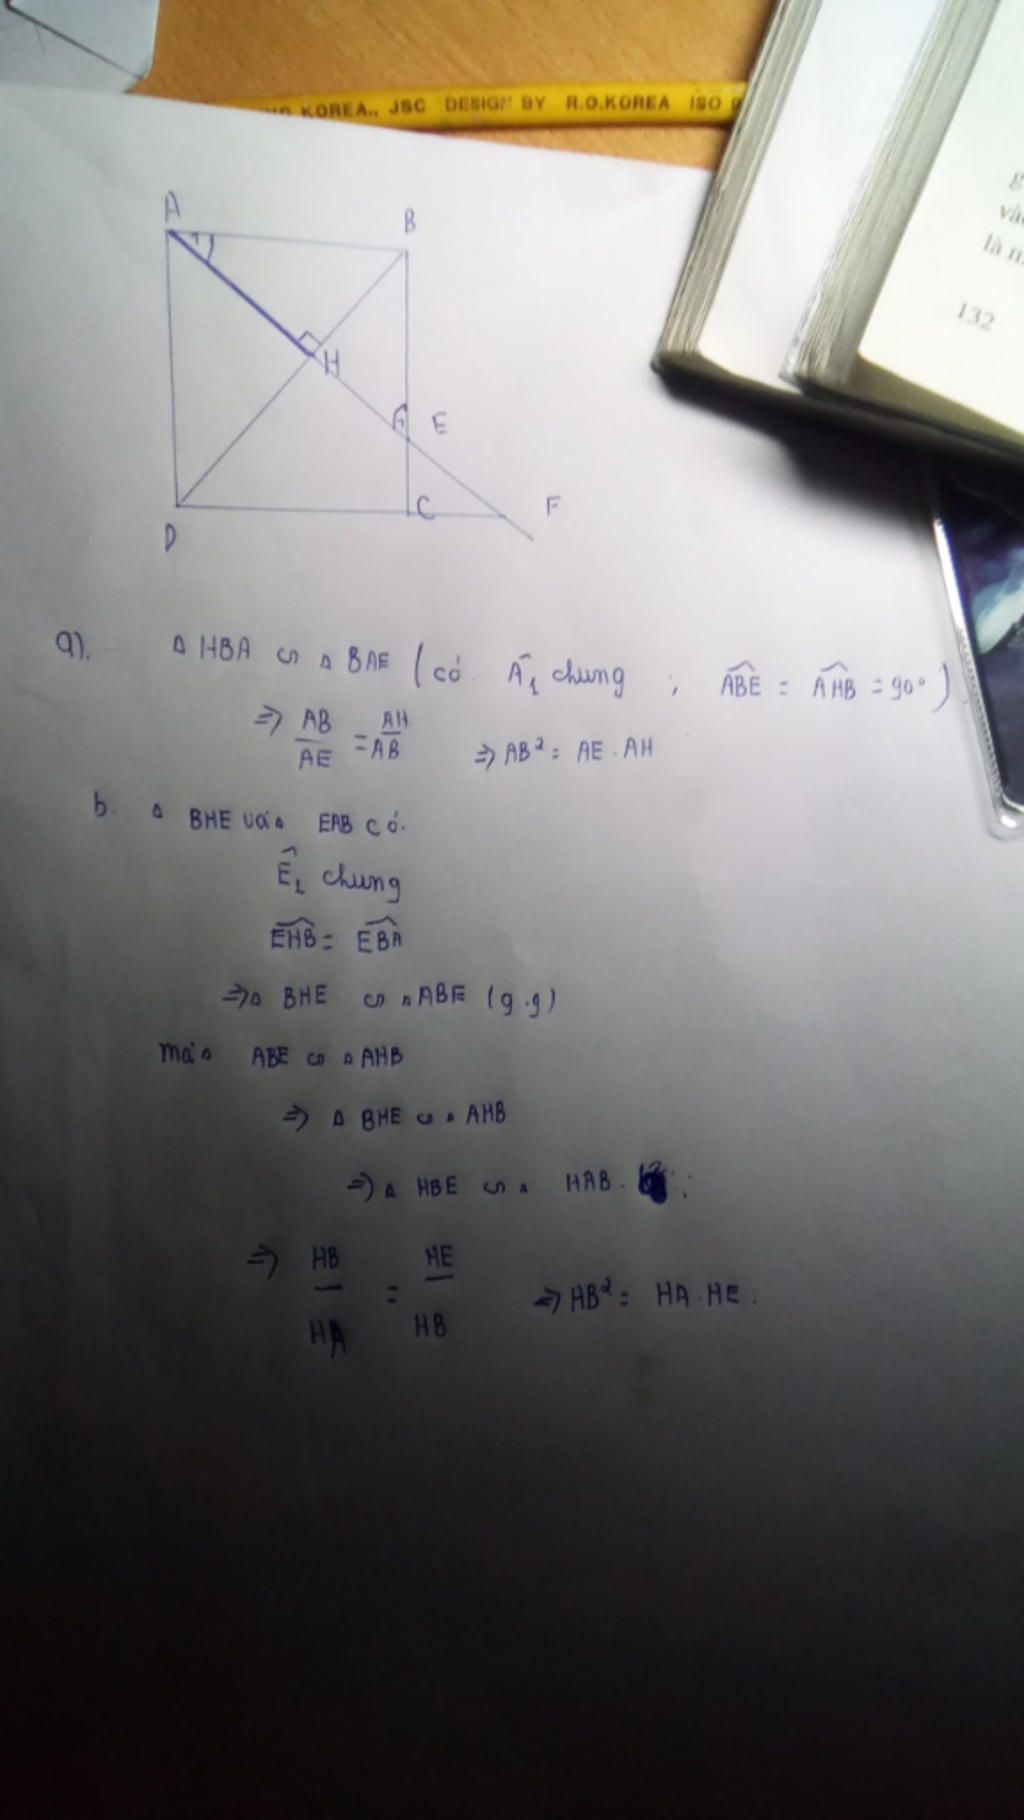 KOREA., JSC DESIGN BY R.O.KOREA ISO 9
g
là m
132
A
B
H
E
C
F
D
a). Δ HBA ∽ Δ BAE (có Â₁ chung ; ABE = AHB = 90°)
⇒ AB/AE = AH/AB ⇒ AB² = AE . AH
b. Δ BHE và Δ EAB có.
Ê₁ chung
EHB = EBA
⇒ Δ BHE ∽ Δ ABE (g.g)
mà Δ ABE ∽ Δ AHB
⇒ Δ BHE ∽ Δ AHB
⇒ Δ HBE ∽ Δ HAB.
⇒ HB/HA = HE/HB ⇒ HB² = HA . HE .